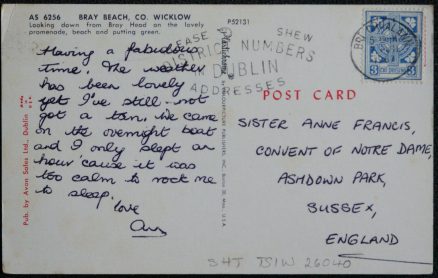 AS 6256 BRAY BEACH, CO. WICKLOW
Looking down from Bray Head on the lovely
promenade, beach and putting green.
P52131
Having a fabulous
time. The weather
has been lovely
yet I've still not
got a tan. We came
on the overnight boat
and I only slept an
hour 'cause it was
too calm to rock me
to sleep.
love
Pub. by Avon Sales Ltd., Dublin
SHEW
DISTRICT NUMBERS
DUBLIN
ADDRESSES
3
POST CARD
SISTER ANNE FRANCIS,
CONVENT OF NOTRE DAME,
ASHDOWN PARK,
SUSSEX,
ENGLAND